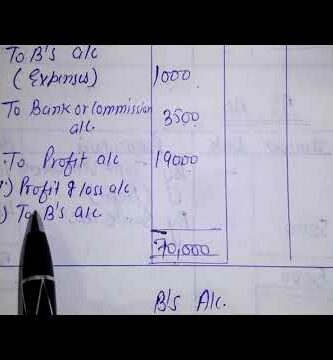 To B's a/c
(Expenses) 1000
To Bank or Commission
a/c. 3500
To Profit a/c 19000
) Profit & loss a/c
) To B's a/c
70,000
B's A/c.